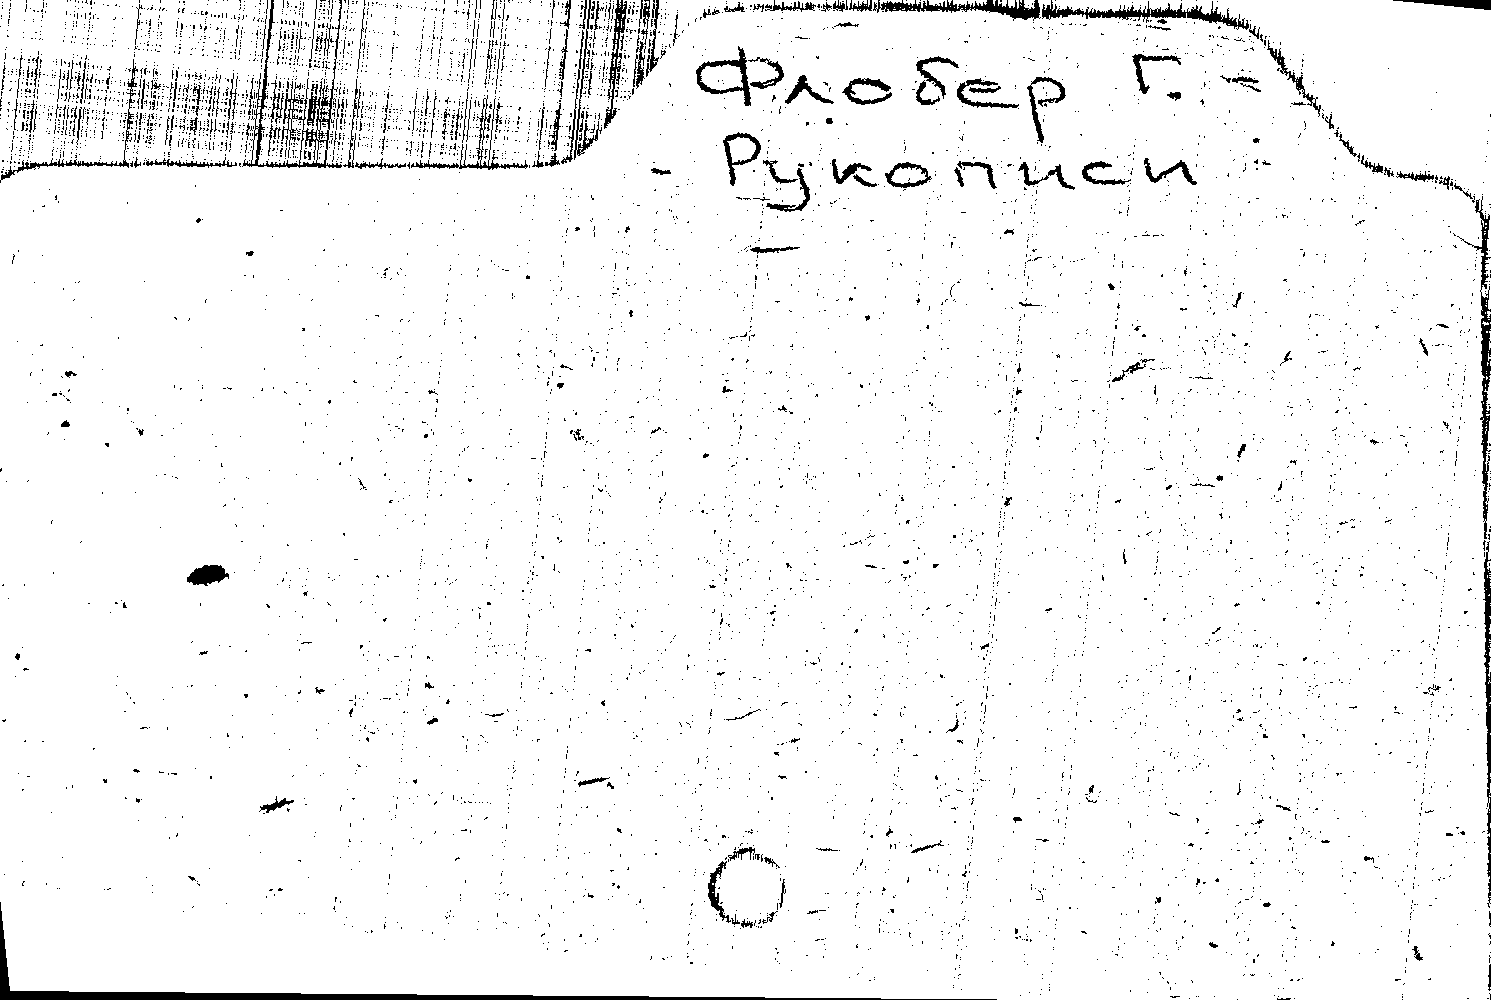 Флобер Г. -
- Рукописи